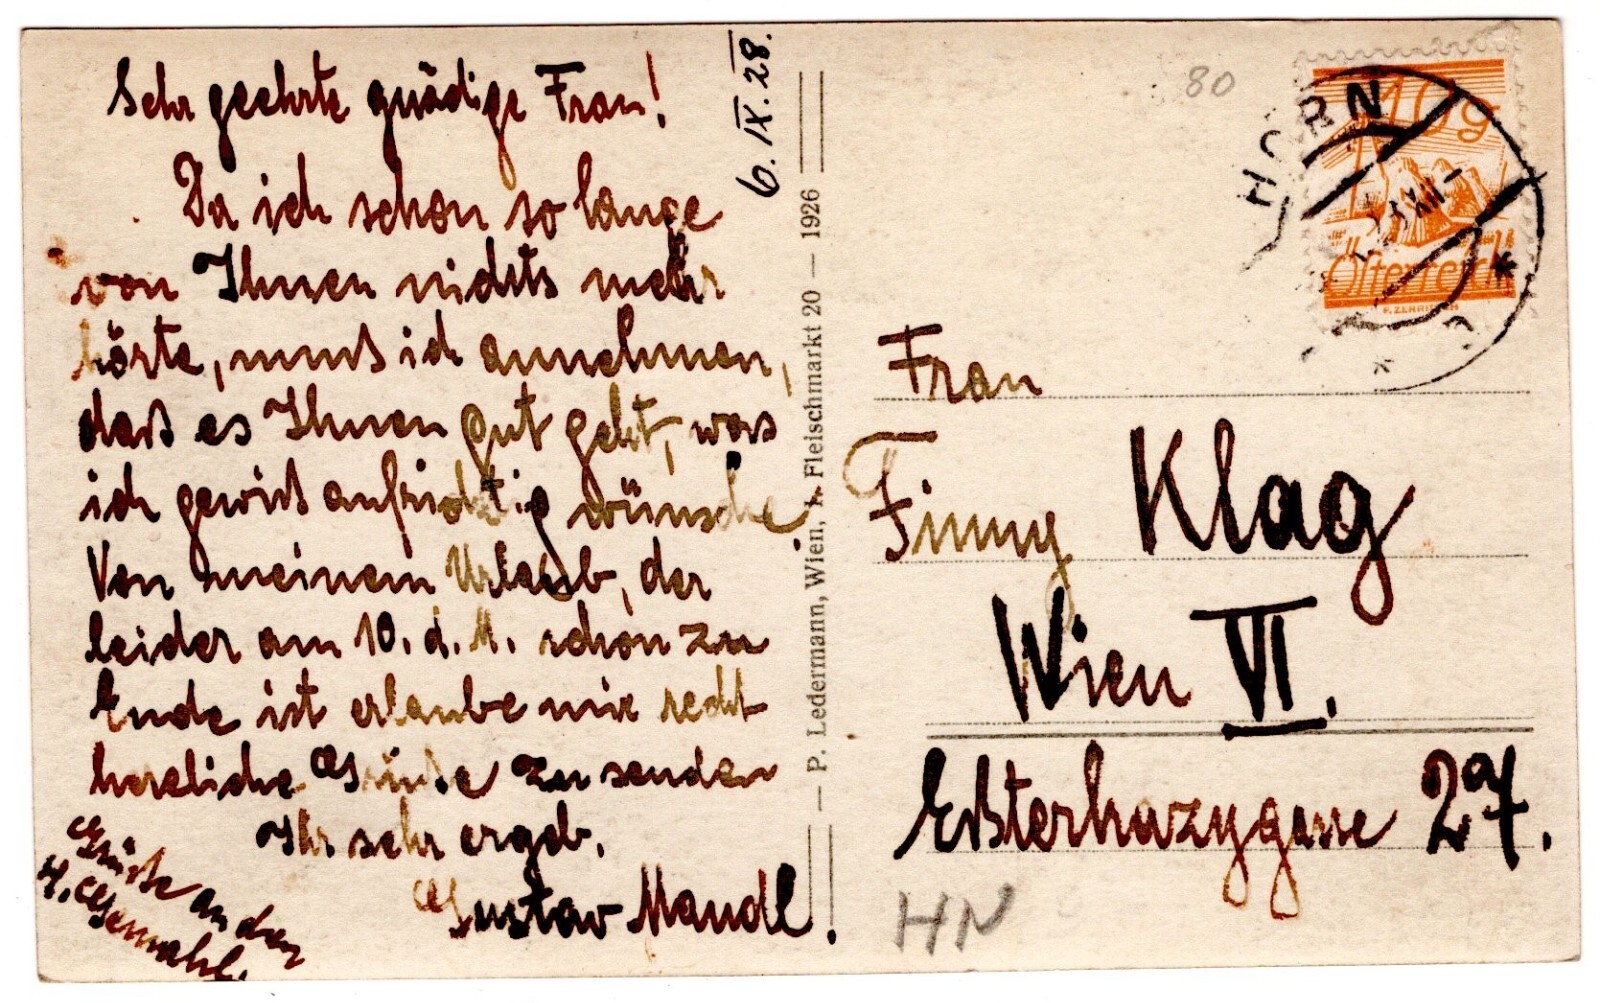 Sehr geehrte gnädige Frau!
6. IX. 28.
Da ich schon so lange
von Ihnen nichts mehr
hörte, muß ich annehmen,
daß es Ihnen gut geht, was
ich gewiß aufrichtig wünsche.
Von meinem Urlaub, der
leider am 10. d. M. schon zu
Ende ist erlaube mir recht
herzliche Grüße zu senden
Ihr sehr ergeb.
Gustav Mandl.
Grüße an den
H. Gemahl.
— P. Ledermann, Wien, I. Fleischmarkt 20 — 1926
80
HORN
10g
Österreich
Frau
Finny Klag
Wien VI.
Eßterhazygasse 27.
HN